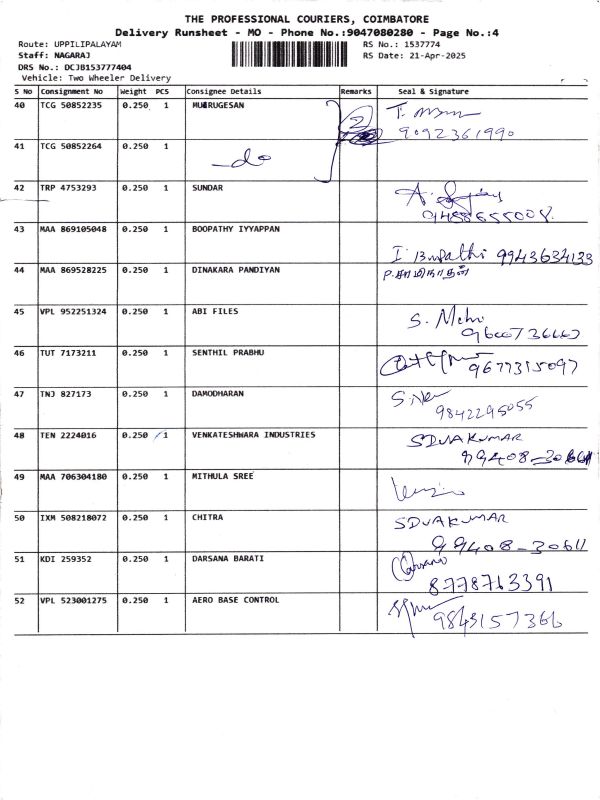 THE PROFESSIONAL COURIERS, COIMBATORE
Delivery Runsheet - MO - Phone No.:9047080280 - Page No.:4
Route: UPPILIPALAYAM
RS No.: 1537774
Staff: NAGARAJ
RS Date: 21-Apr-2025
DRS No.: DCJB153777404
Vehicle: Two Wheeler Delivery
S No Consignment No Weight PCS Consignee Details Remarks Seal & Signature
40 TCG 50852235 0.250 1 MURUGESAN 2
9092361990
41 TCG 50852264 0.250 1 do
42 TRP 4753293 0.250 1 SUNDAR
9488655008
43 MAA 869105048 0.250 1 BOOPATHY IYYAPPAN
I Bupathi 9943634133
44 MAA 869528225 0.250 1 DINAKARA PANDIYAN
P.சாமிநாதன்
45 VPL 952251324 0.250 1 ABI FILES
S.
46 TUT 7173211 0.250 1 SENTHIL PRABHU
9677315097
47 TNJ 827173 0.250 1 DAMODHARAN
9842295055
48 TEN 2224016 0.250 1 VENKATESHWARA INDUSTRIES
SIVAKUMAR
99408-30611
49 MAA 706304180 0.250 1 MITHULA SREE
50 IXM 508218072 0.250 1 CHITRA
SIVAKUMAR
99408-30611
51 KDI 259352 0.250 1 DARSANA BARATI
8778763391
52 VPL 523001275 0.250 1 AERO BASE CONTROL
9843157366